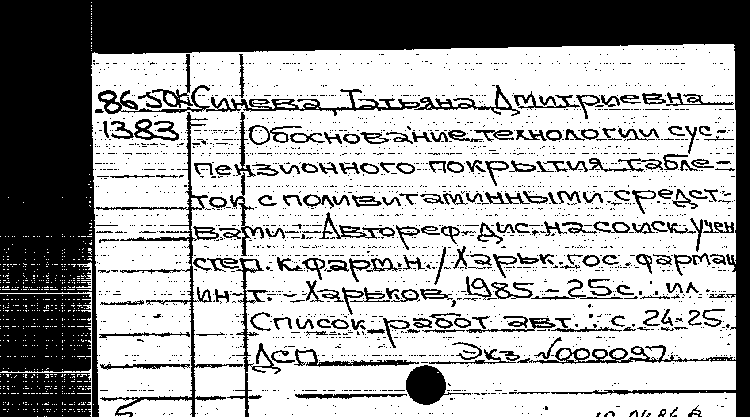 86-50к Синева, Татьяна Дмитриевна
1383 Обоснование технологии сус-
пензионного покрытия табле-
ток с поливитаминными средст-
вами : Автореф. дис. на соиск. учен.
степ. к. фарм. н. / Харьк. гос. фармац.
ин-т. - Харьков, 1985 - 25 с. : ил.
Список работ авт. : с. 24-25.
ДСП Экз. №000097.